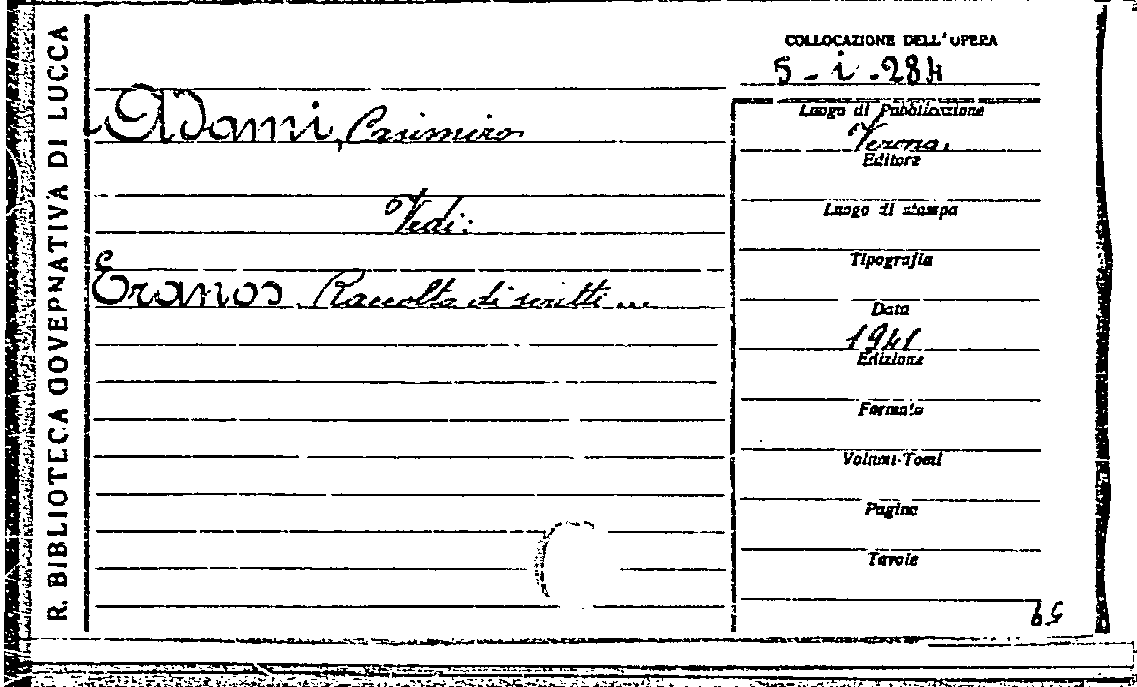 R. BIBLIOTECA GOVERNATIVA DI LUCCA
COLLOCAZIONE DELL'OPERA
5 - i - 284
Adami, Casimiro
Vedi:
Eranos. Raccolta di scritti...
Luogo di Pubblicazione
Verona.
Editore
Luogo di stampa
Tipografia
Data
1941
Edizione
Formato
Volumi-Tomi
Pagine
Tavole